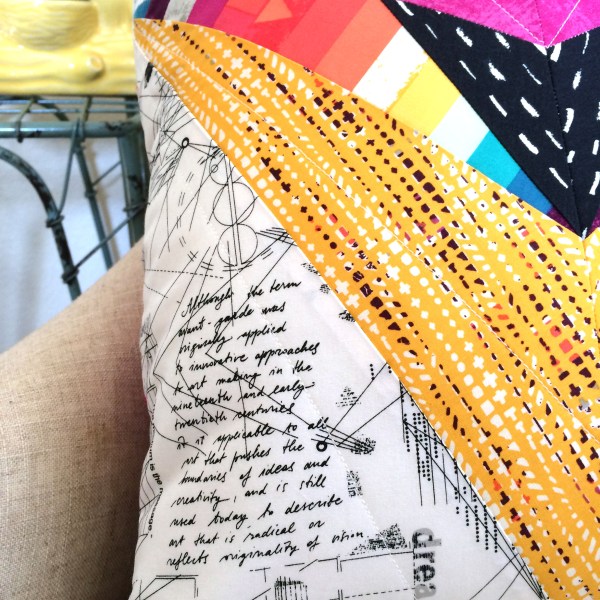 Although the term
avant-garde was
originally applied
to innovative approaches
to art making in the
nineteenth and early
twentieth centuries
it is applicable to all
art that pushes the
boundaries of ideas and
creativity, and is still
used today to describe
art that is radical or
reflects originality of vision
drea